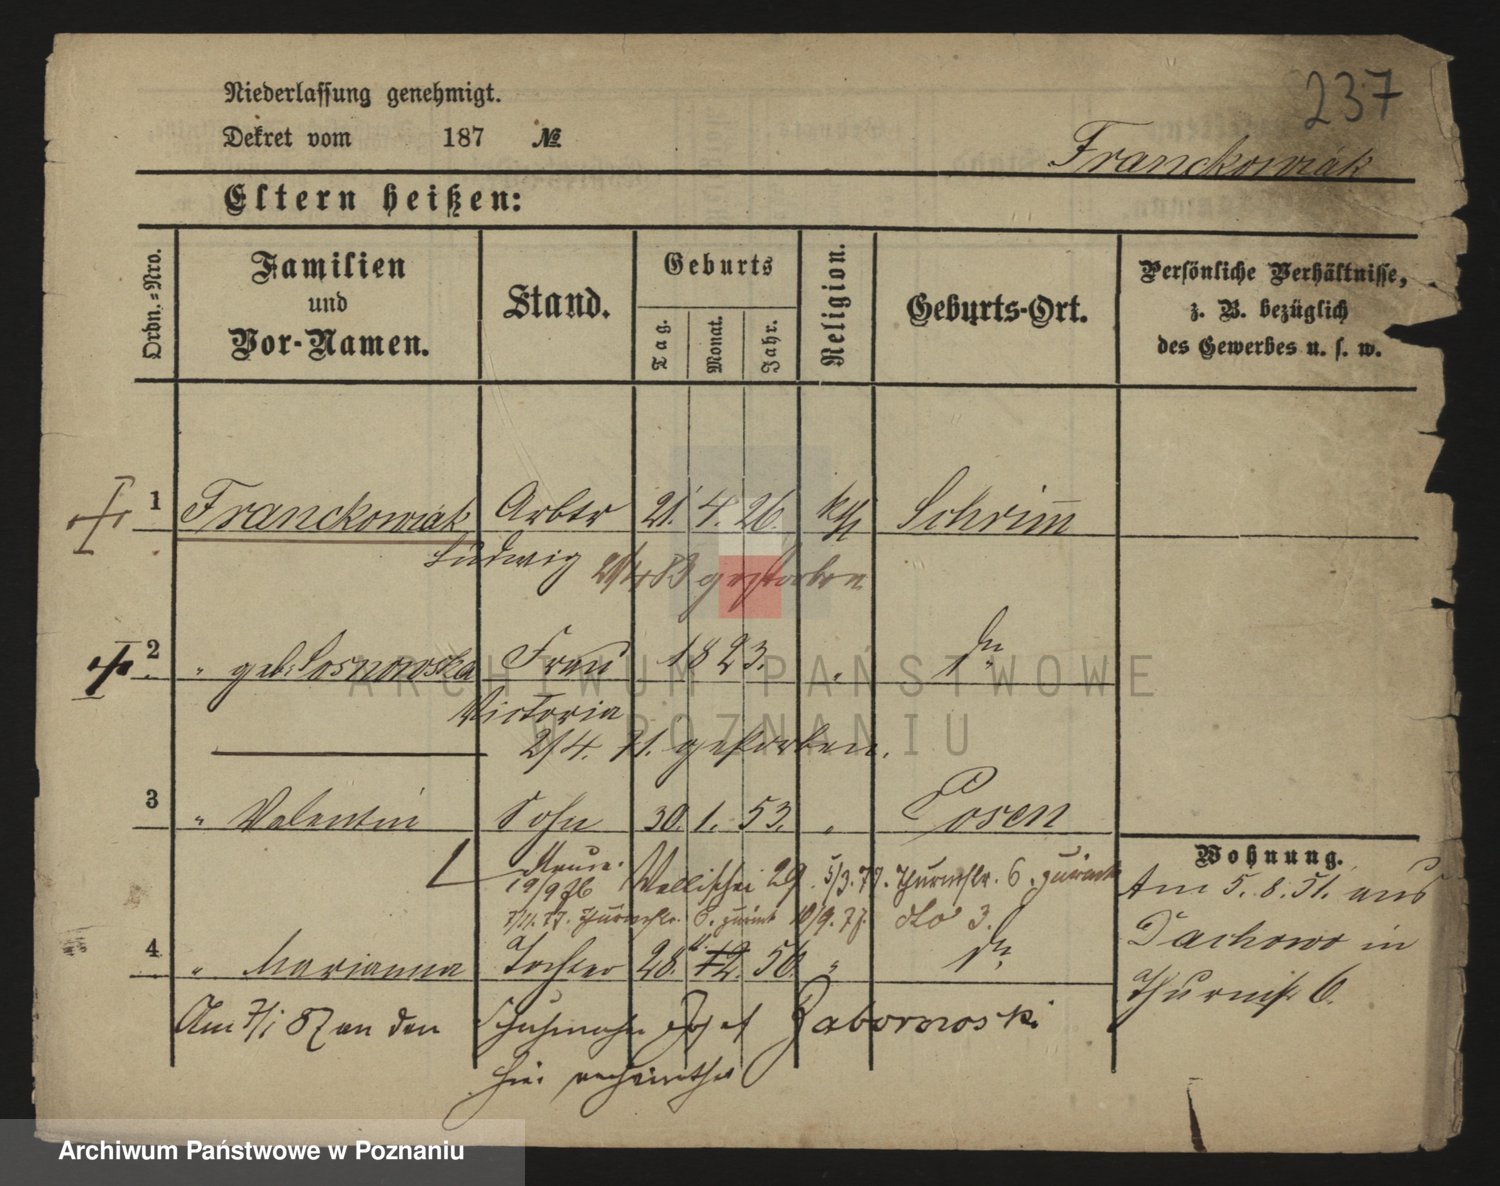 237
Niederlassung genehmigt.
Dekret vom 187 №
Franckowiak
Eltern heißen:
Ordn.=Nro.
Familien und Vor-Namen.
Stand.
Geburts
Tag.
Monat.
Jahr.
Religion.
Geburts-Ort.
Persönliche Verhältnisse, z. B. bezüglich des Gewerbes u. s. w.
1 Franckowiak Arbtr 21. 4. 26. kth Schrimm
Ludwig 21/4 83 gestorben
2 " geb. Sosnowska Frau 1823. " do
Victoria
2/4. 71. gestorben.
3 " Valentin Sohn 30. 1. 53. " Posen
19/9 76 Wallischei 29. 5/3. 77. Thurmstr. 6. zurück
Thurmstr. 6. zurück 10/9. 77. dto 3.
4 " Marianna Tochter 28. 12. 56. " do
Am 7/1 87 an den Schuhmacher Josef Zaborowski
hier verheirathet
Wohnung.
Am 5. 8. 51. aus
Dachowo in
Thurmstr 6.
ARCHIWUM PAŃSTWOWE
W POZNANIU
Archiwum Państwowe w Poznaniu